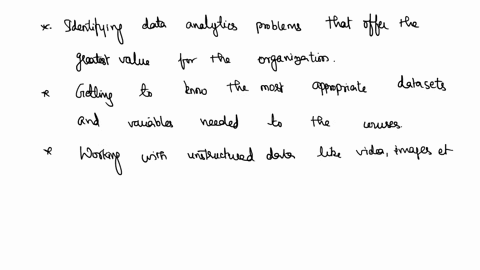 *. Identifying data analytics problems that offer the
greatest value for the organization.
* Getting to kno the most appropriate datasets
and variables needed to the
* Working with unstructured data like video, images et